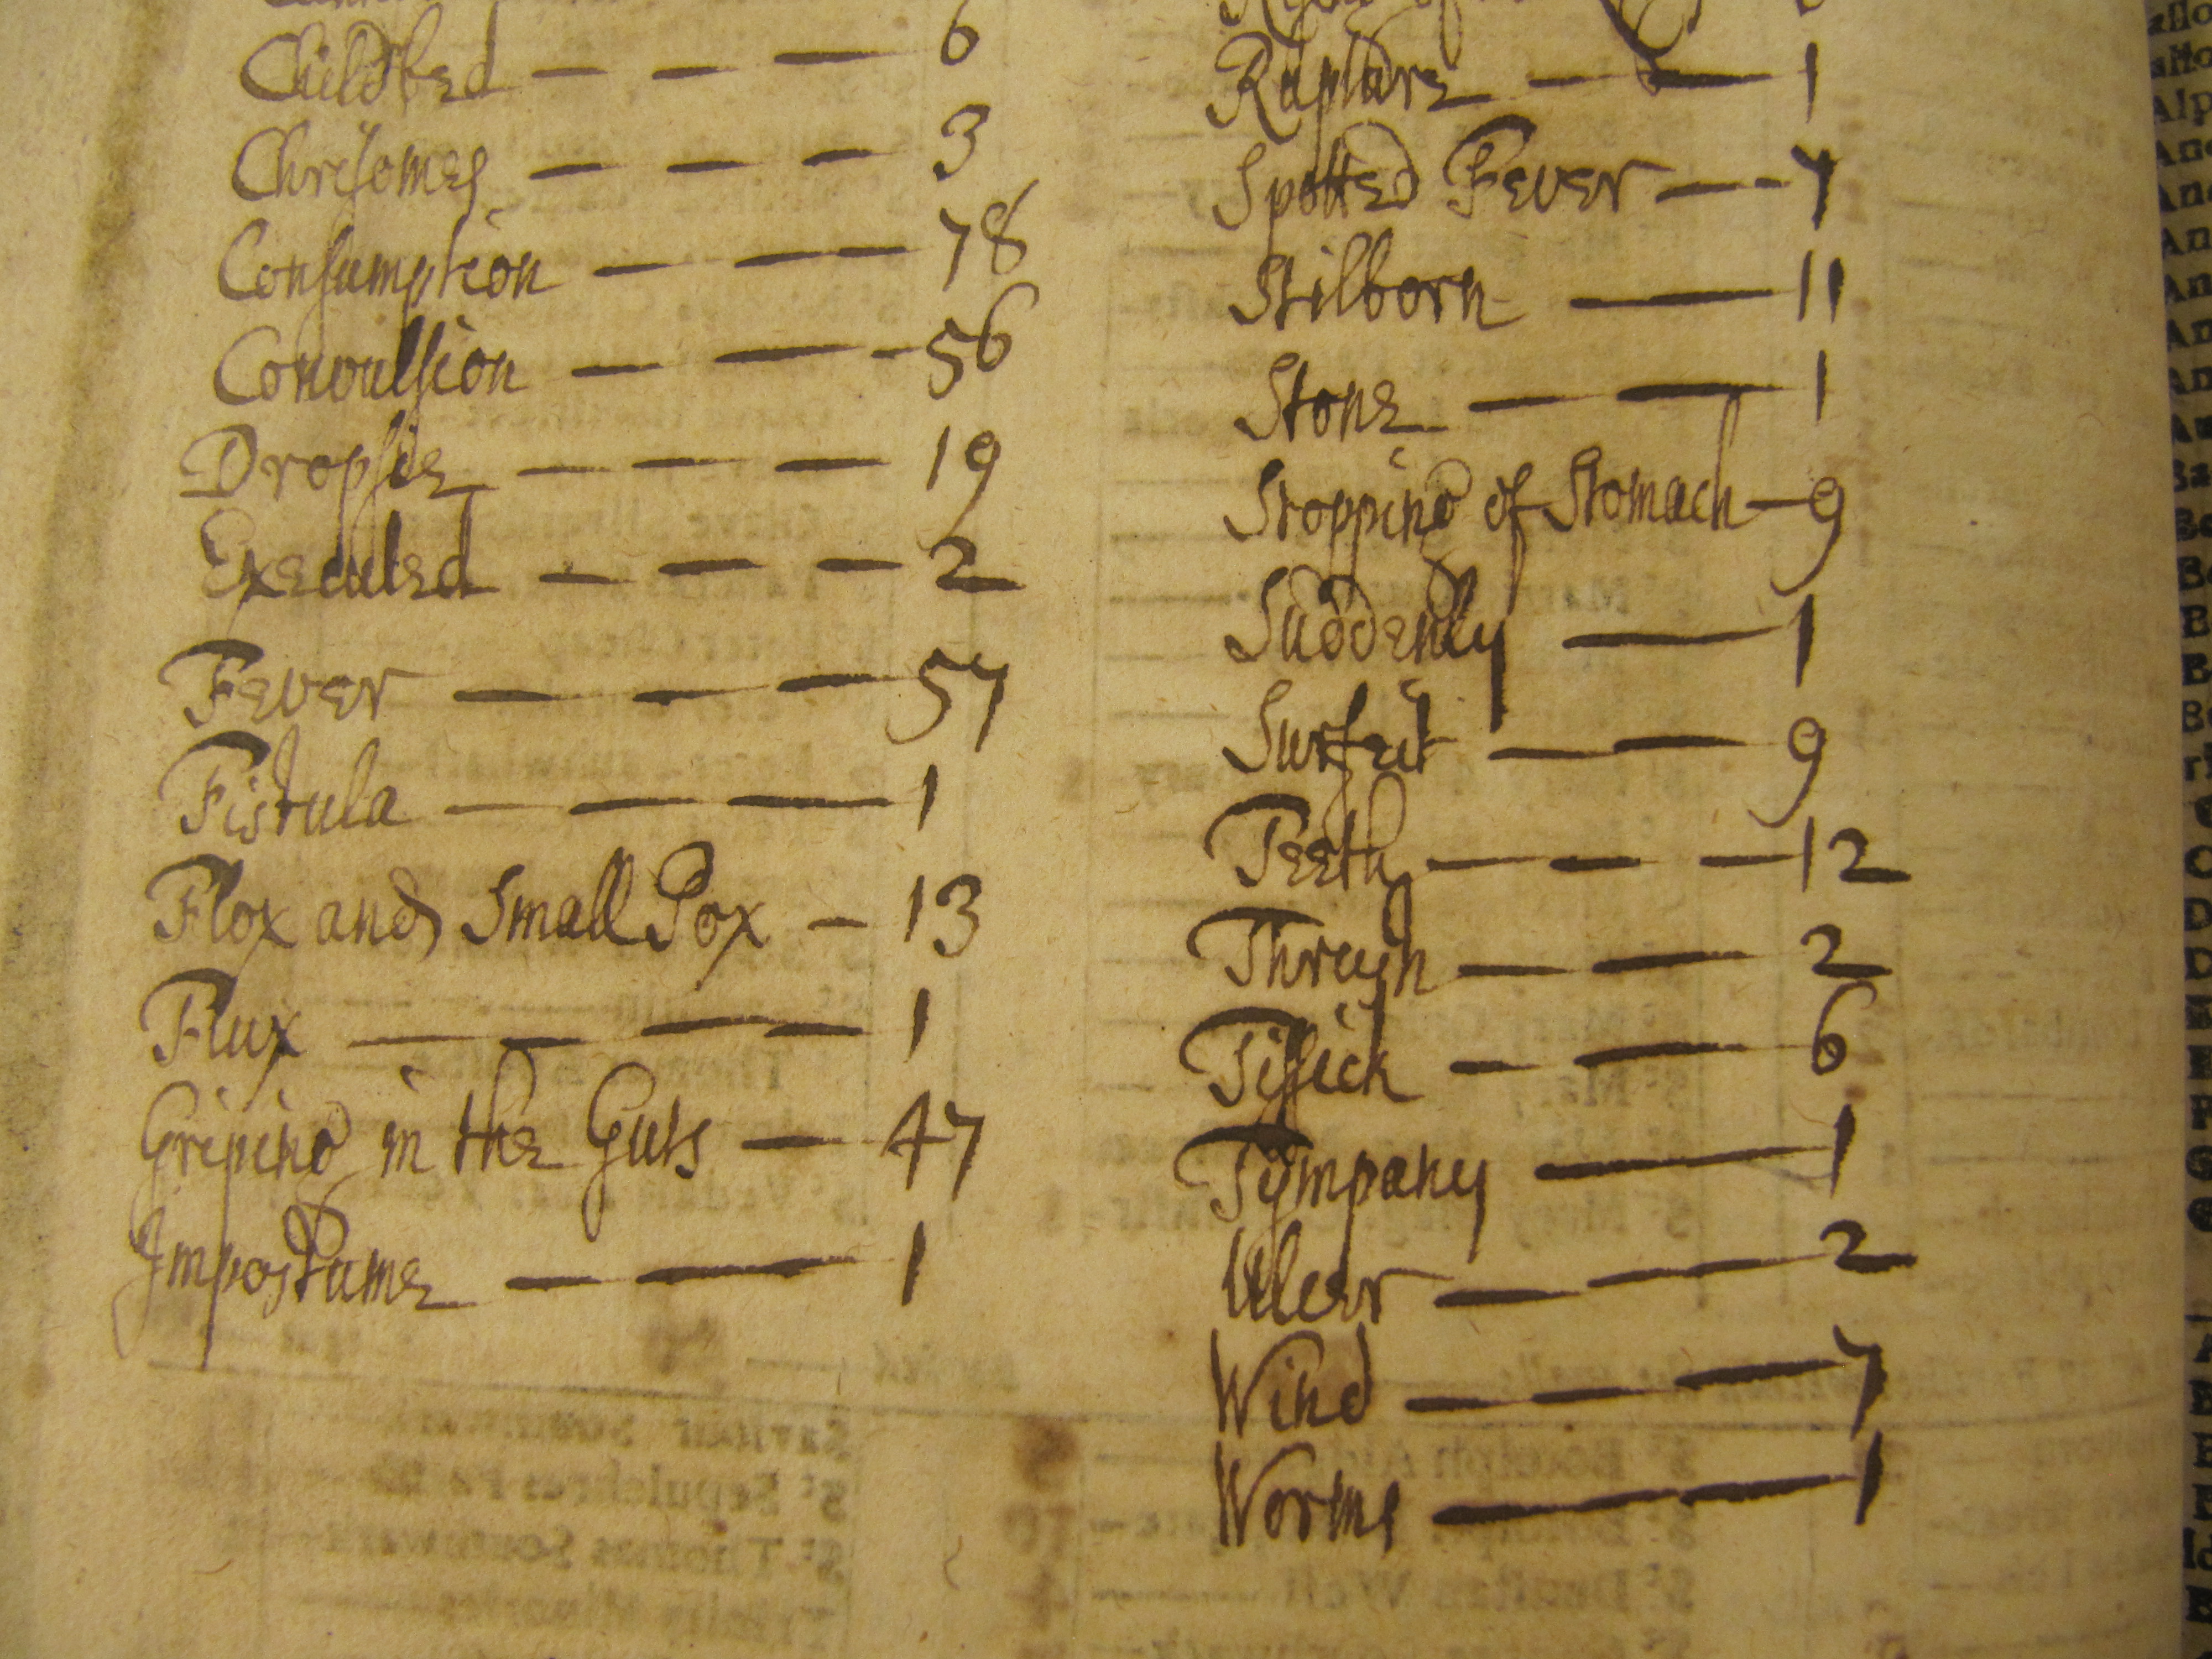 Childbed — — — 6
Chrisomes — — — 3
Consumption — — — 78
Convulsion — — — 56
Dropsie — — — 19
Executed — — — 2
Fever — — — 57
Fistula — — — 1
Flox and Small Pox — 13
Flux — — — — 1
Griping in the Guts — 47
Impostume — — 1
Rupture — — 1
Spotted Fever — — 7
Stilborn — 11
Stone — — 1
Stopping of Stomach — 9
Suddenly — 1
Surfeit — — 9
Teeth — — — 12
Thrush — — 2
Tissick — — 6
Tympany — 1
Ulcer — — 2
Wind — — — 7
Worms — — 1